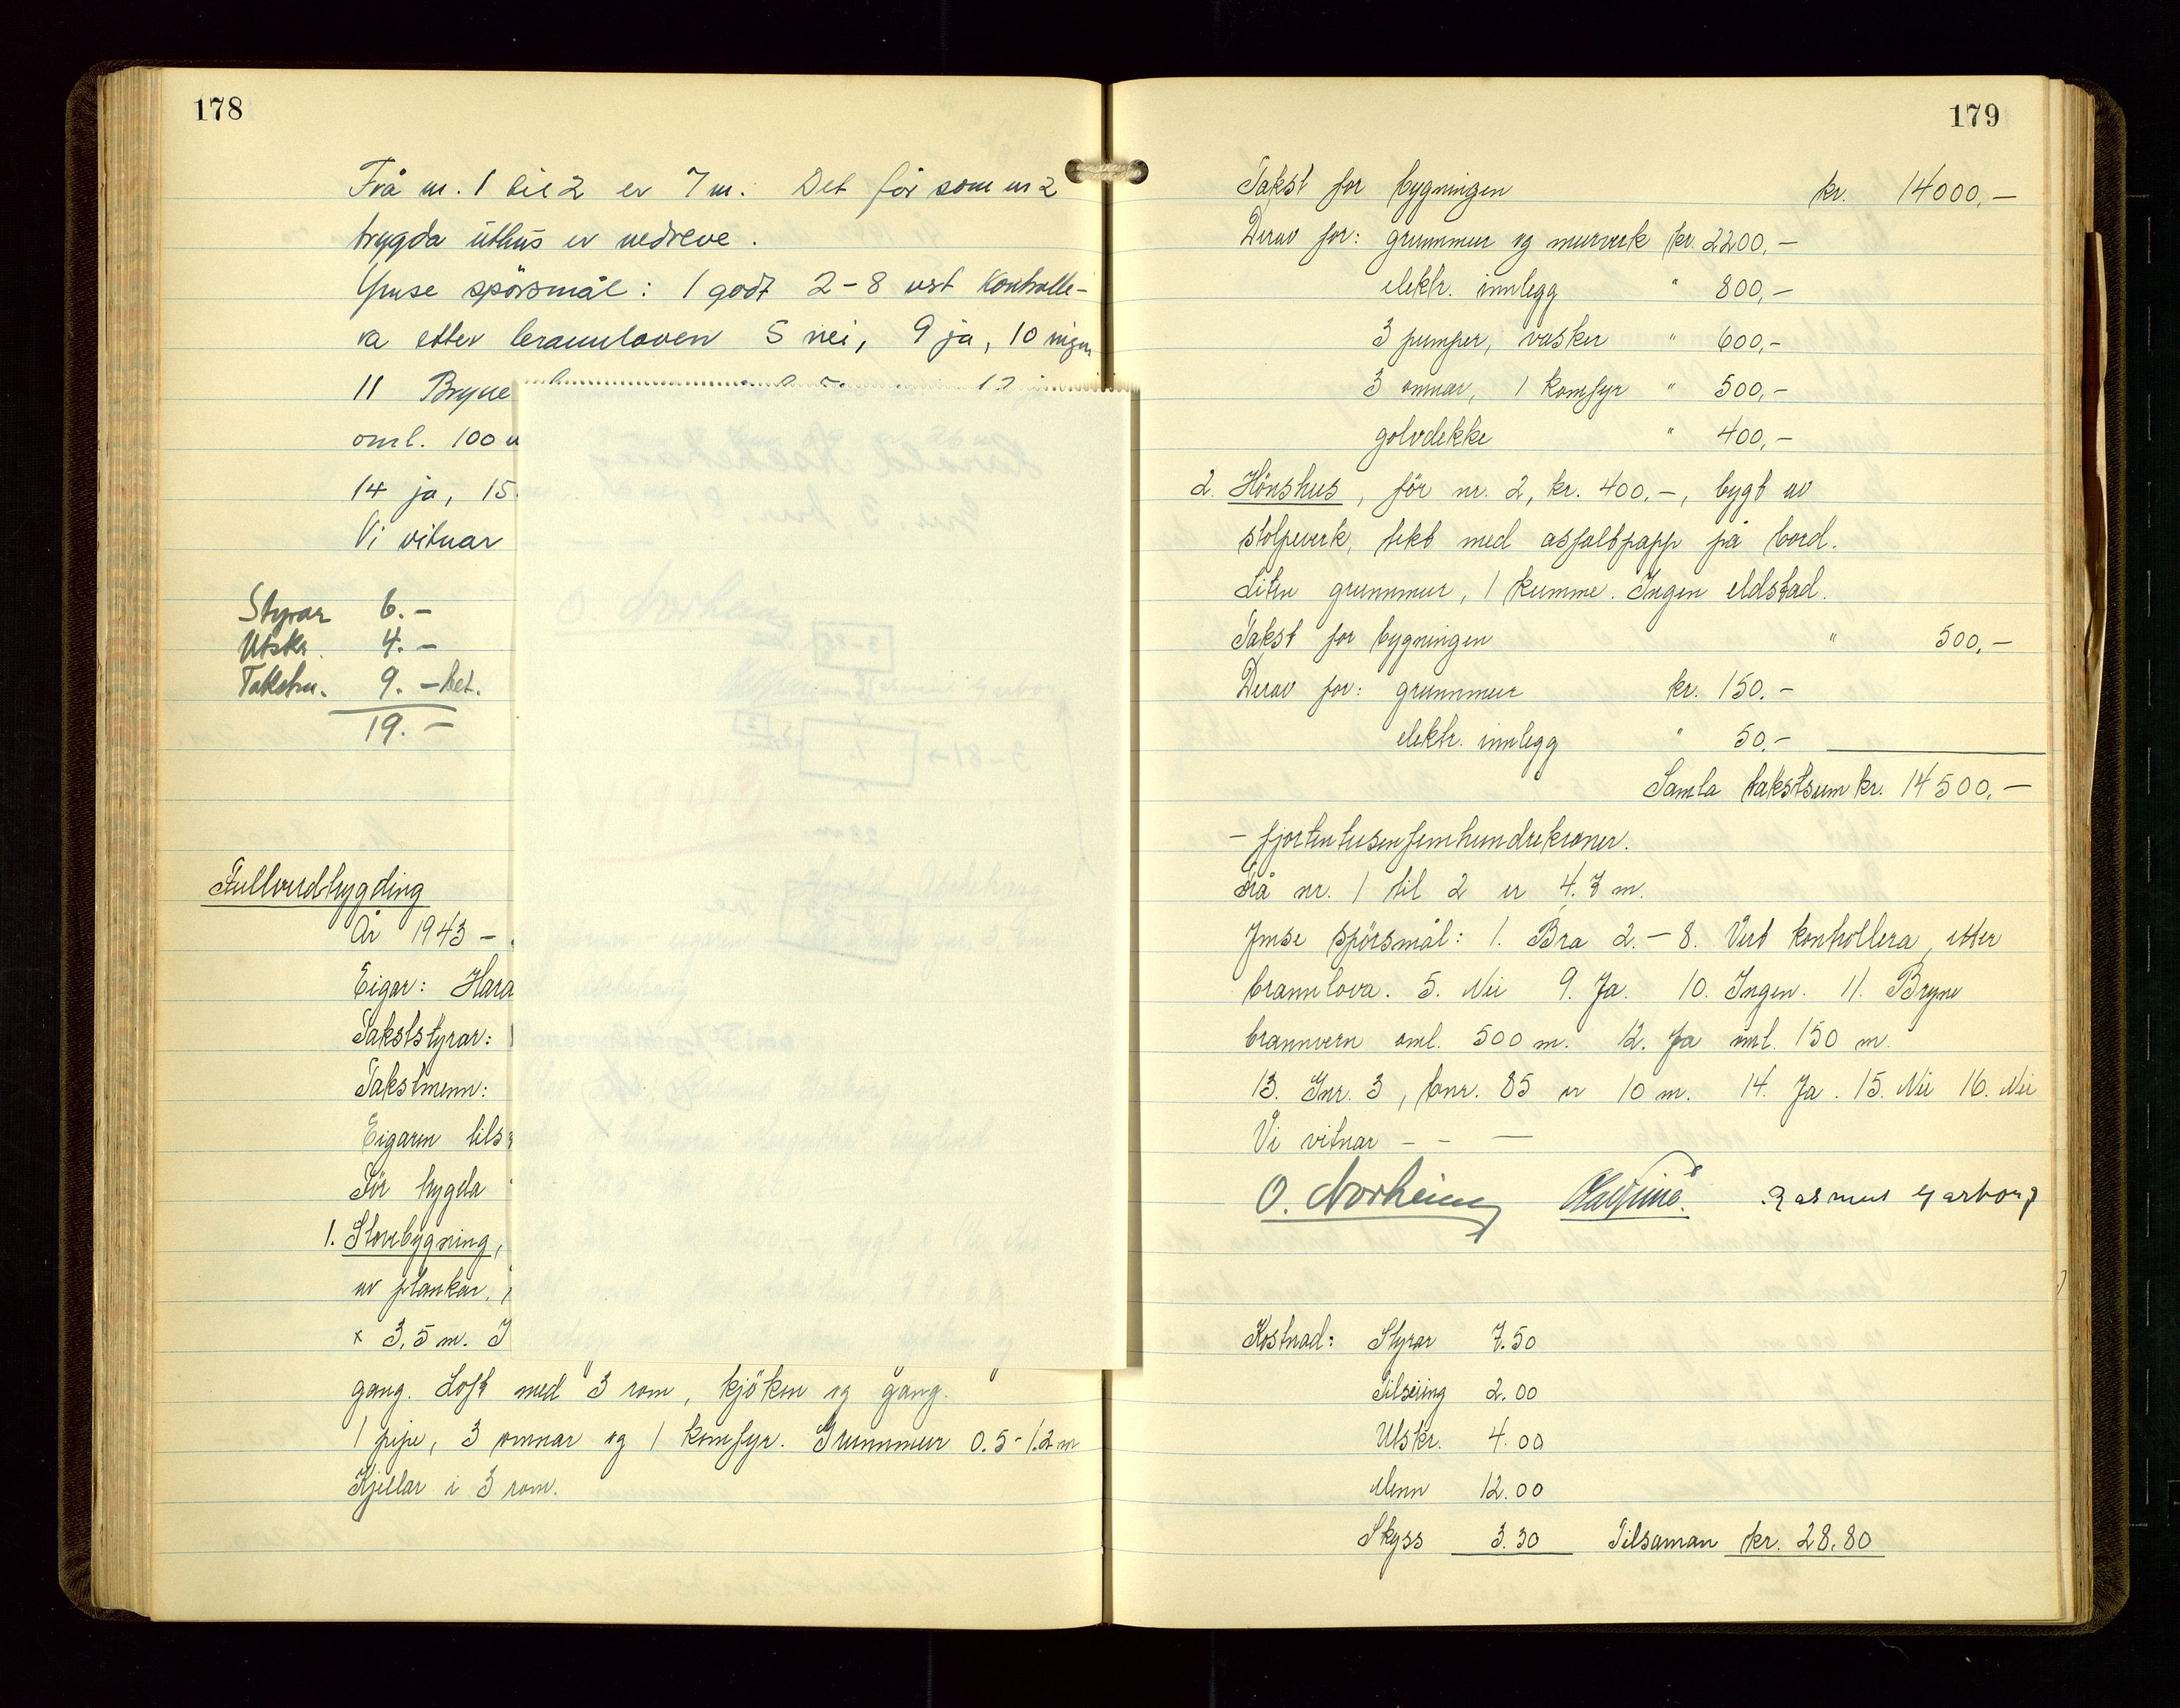 178
Frå nr. 1 til 2 er 7 m. Det för som nr 2
bygda úthus er nedreve.
Ymse spörsmål: 1 godt 2-8 vert kontrolle-
ra etter brannloven 5 nei, 9 ja, 10 ingen
11 Bryne
oml. 100 m
14 ja, 15.
Vi vitnar
Styrar 6.-
Utskr. 4.-
Takstm. 9.- bet.
19.-
Fullverdbygding
År 1943 -
Eigar: Hara
Takststyrar:
Takstmenn:
Eigaren tils
För bygda
1. Stovebygning,
av plankar,
x 3,5 m. I
gang. Loft med 3 rom, kjöken og gang.
1 pipe, 3 omnar og 1 komfyr. Grunnmur 0.5-1.2 m
Kjellar i 3 rom.
179
Takst for bygningen kr. 14000,-
Derav for: grunnmur og murverk kr. 2200,-
elektr. innlegg " 800,-
3 pumper, vasker " 600,-
3 omnar, 1 komfyr " 500,-
golvdekke " 400,-
2. Hönshus, för nr. 2, kr. 400.-, bygt av
stolpeverk, tekt med asfaltpapp på bord.
Liten grunnmur, 1 kumme. Ingen eldstad.
Takst for bygningen " 500,-
Derav for: grunnmur kr. 150.-
elektr. innlegg " 50,-
Samla takstsum kr. 14500,-
- fjortentusenfemhundrekroner.
Frå nr. 1 til 2 er 4.7 m.
Ymse spörsmål: 1. Bra 2.-8. Vert kontrollera etter
brannlova. 5. Nei 9. Ja. 10. Ingen. 11. Bryne
brannvern oml. 500 m. 12. Ja oml. 150 m.
13. Gnr. 3, bnr. 85 er 10 m. 14. Ja. 15. Nei 16. Nei
Vi vitnar - - -
O. Norheim Rasmus Garborg
Kostnad: Styrar 7.50
Tilseiing 2.00
Utskr. 4.00
Menn 12.00
Skyss 3.30 Tilsaman kr. 28.80